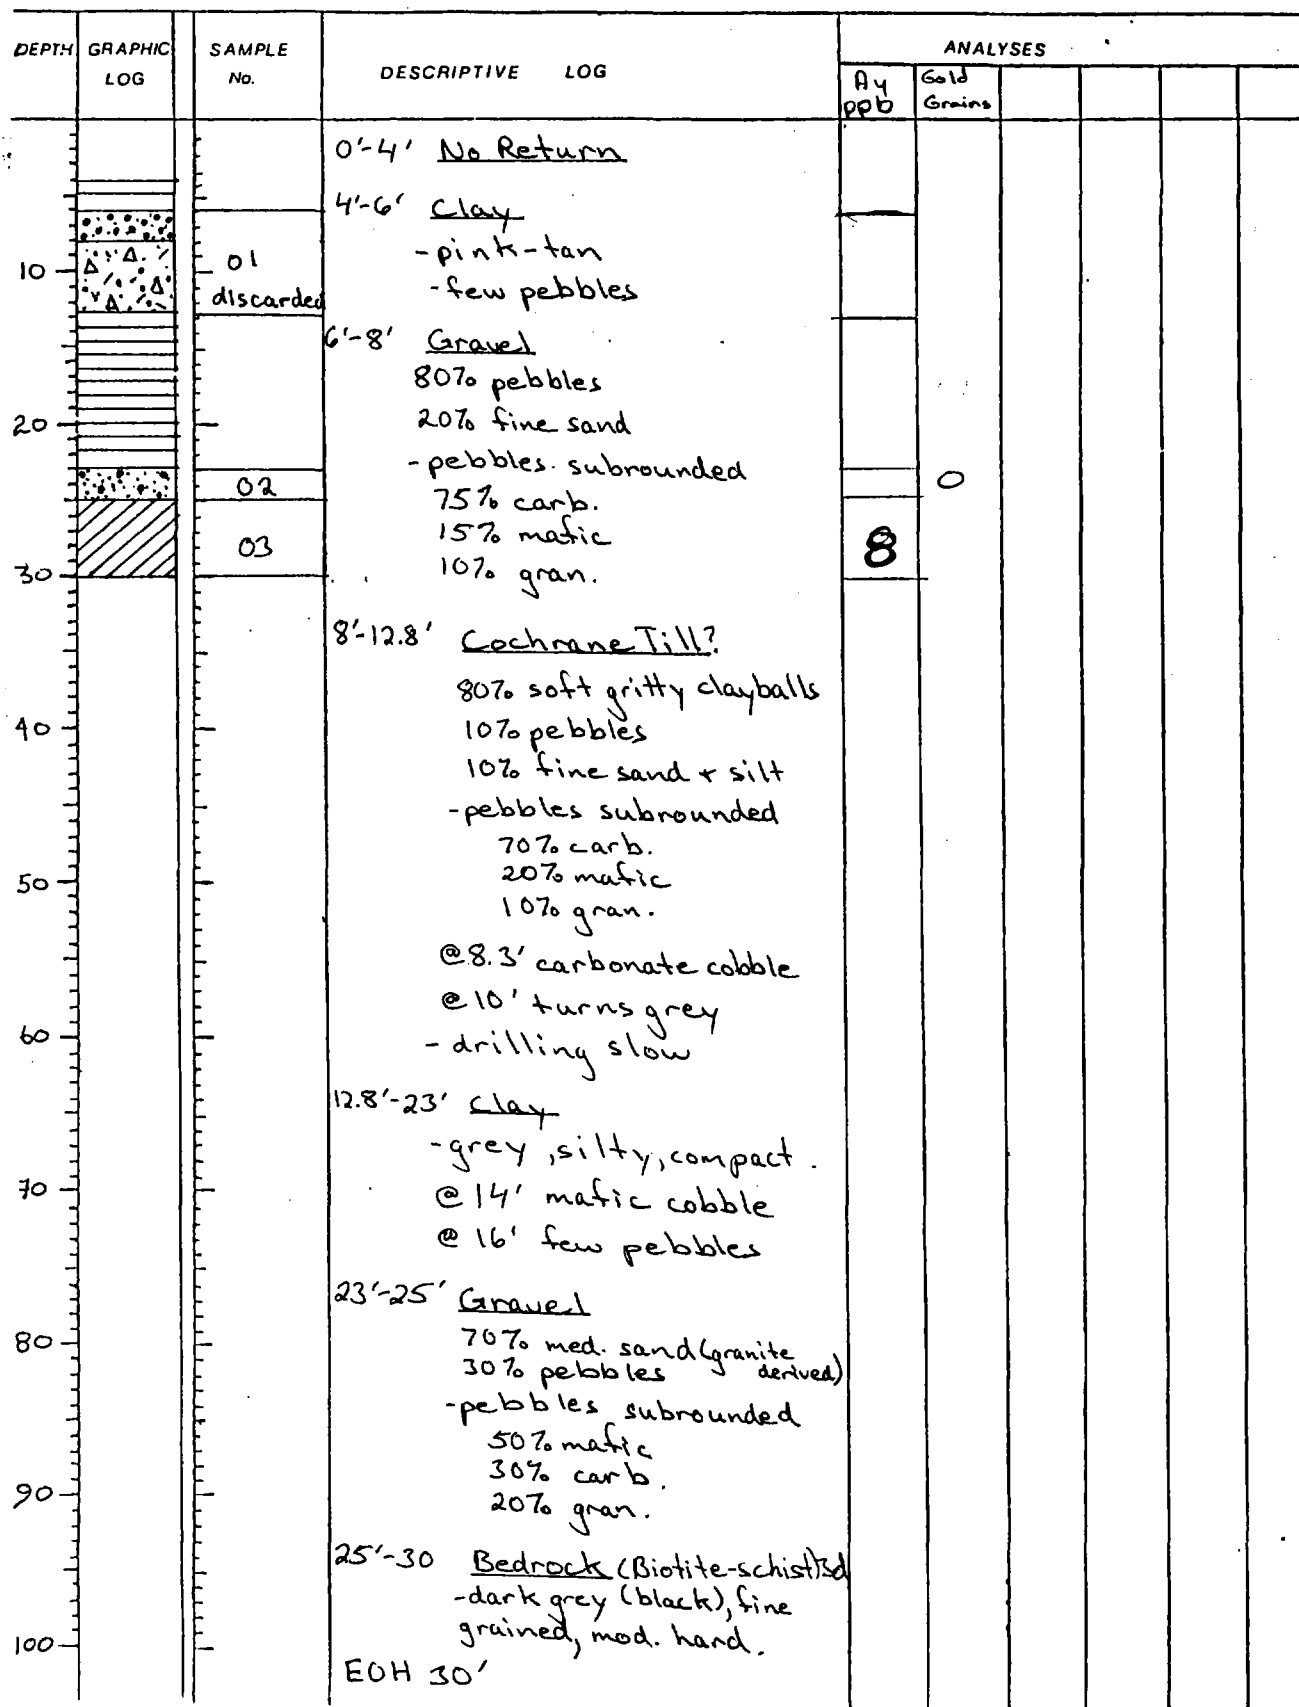 DEPTH GRAPHIC LOG SAMPLE No. DESCRIPTIVE LOG ANALYSES
Au ppb Gold Grains
0'-4' No Return
4'-6' Clay
-pink-tan
-few pebbles
10 01 discarded
6'-8' Gravel
80% pebbles
20% fine sand
20
-pebbles subrounded
02 0
75% carb.
15% mafic
03 8
10% gran.
30
8'-12.8' Cochrane Till?
80% soft gritty clayballs
40 10% pebbles
10% fine sand + silt
-pebbles subrounded
70% carb.
50 20% mafic
10% gran.
@8.3' carbonate cobble
@10' turns grey
60 -drilling slow
12.8'-23' Clay
-grey, silty, compact.
70 @14' mafic cobble
@16' few pebbles
23'-25' Gravel
80 70% med. sand (granite derived)
30% pebbles
-pebbles subrounded
50% mafic
30% carb.
90 20% gran.
25'-30 Bedrock (Biotite-schist) 3d
-dark grey (black), fine
grained, mod. hard.
100
EOH 30'